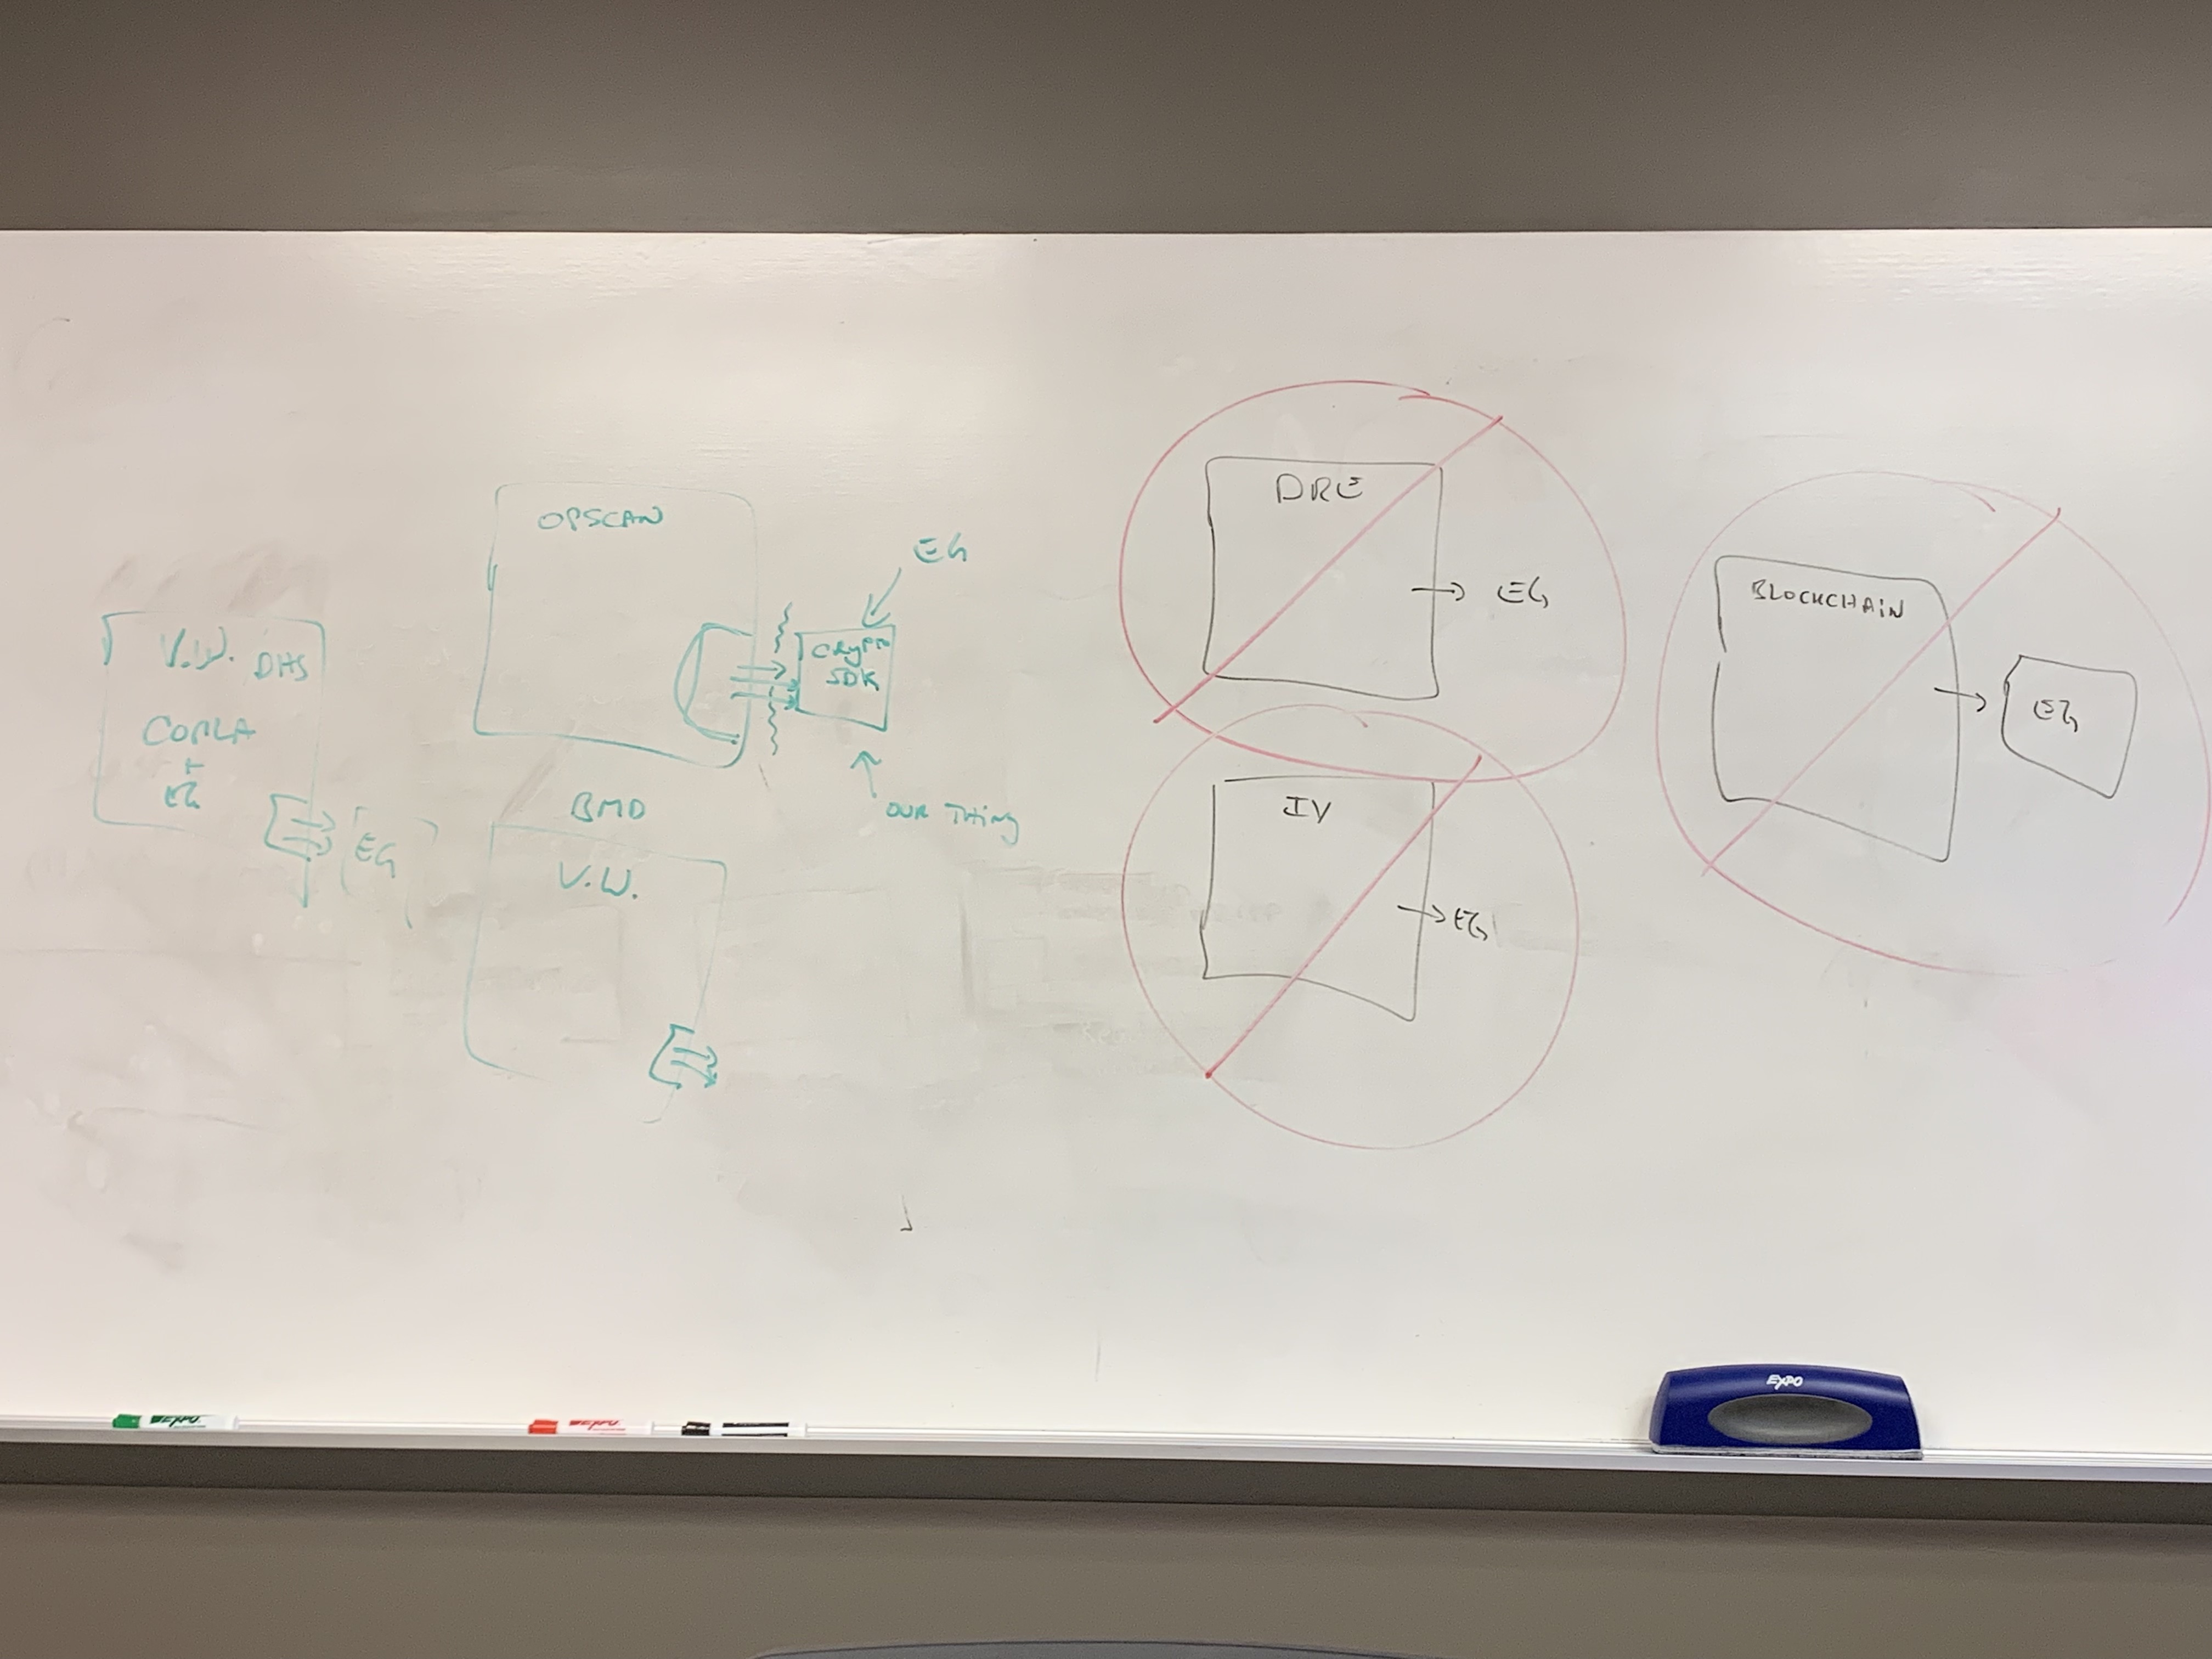 V.W. DHS
CORLA
+
EG
EG
OPSCAN
EG
CRYPTO
SDK
OUR THING
BMD
V.W.
DRE
→ EG
IV
→ EG
BLOCKCHAIN
→ EG
EXPO
EXPO
EXPO